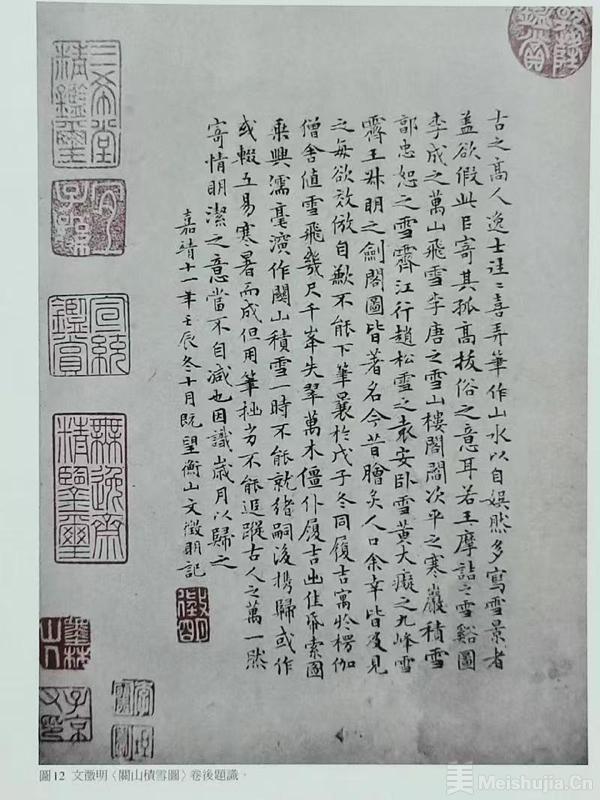 古之高人逸士往往喜弄筆作山水以自娛然多寫雪景者
蓋欲假此以寄其孤高拔俗之意耳若王摩詰之雪谿圖
李成之萬山飛雪李唐之雪山樓閣閻次平之寒巖積雪
郭忠恕之雪霽江行趙松雪之袁安卧雪黃大癡之九峰雪
霽王叔明之劍閣圖皆著名今昔膾炙人口余幸皆及見
之每欲效倣自歉不能下筆曩於戊子冬同履吉寓於楞伽
僧舍值雪飛幾尺千峯失翠萬木僵仆履吉出佳帋索圖
乘興濡毫演作關山積雪一時不能就緒嗣後携歸或作
或輟五易寒暑而成但用筆拙劣不能追蹤古人之萬一然
寄情明潔之意當不自減也因識歲月以歸之
嘉靖十一年壬辰冬十月既望衡山文徵明記
三希堂
精鑑璽
宜子孫
宣統
鑑賞
無逸齋
精鑒璽
乾隆
鑑賞
徵明
子京
圖12 文徵明〈關山積雪圖〉卷後題識。
美 Meishujia.Cn